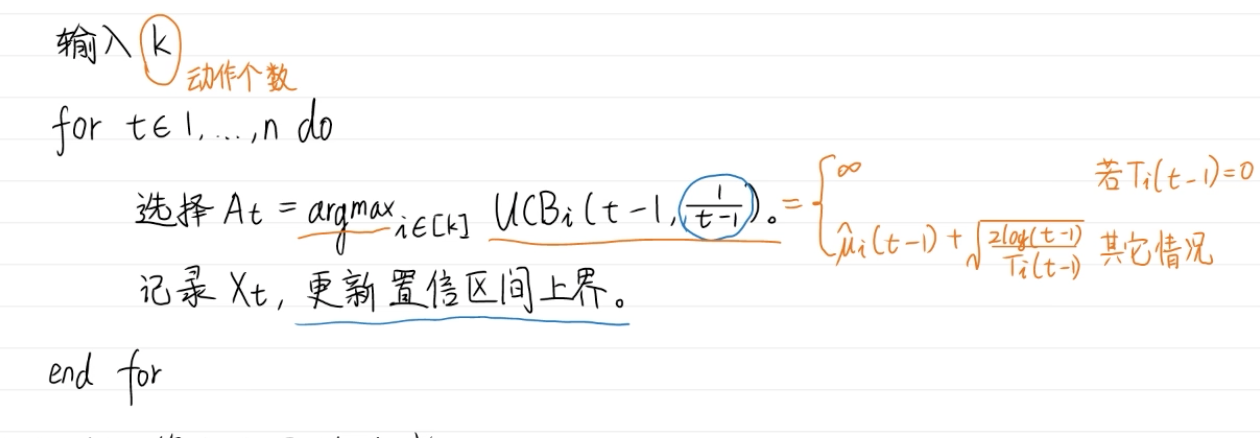 输入 k
动作个数
for t∈1,...,n do
选择 At = argmax i∈[k] UCBi(t-1, 1/(t-1))。= { ∞ 若Ti(t-1)=0
μ̂i(t-1) + √(2log(t-1)/Ti(t-1)) 其它情况
记录 Xt, 更新置信区间上界。
end for